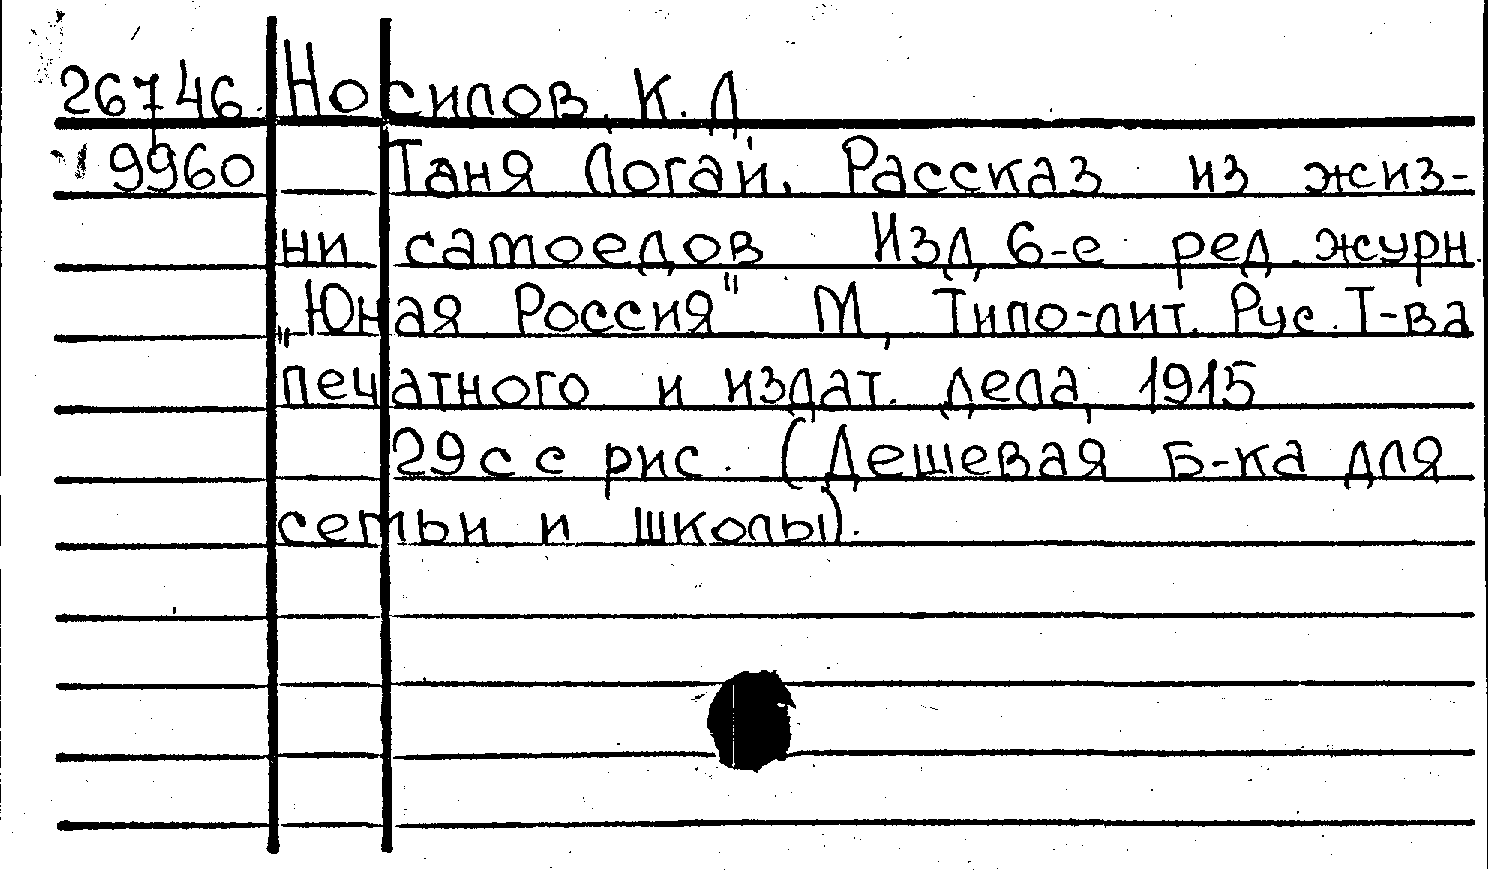 26746. Носилов, К. Д.
9960 Таня Логай. Рассказ из жиз-
ни самоедов Изд. 6-е ред. журн.
„Юная Россия" М., Типо-лит. Рус. Т-ва
печатного и издат. дела, 1915
29 с с рис. (Дешевая Б-ка для
семьи и школы).